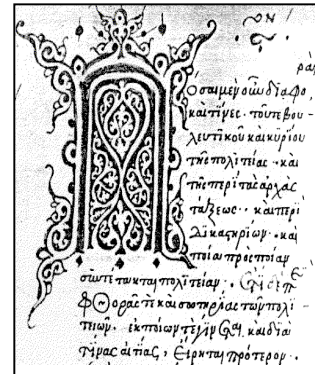 ραὶ
όσαι μὲν οὖν διαφο
καὶ τίνες · τοῦ τε βου -
λευτικοῦ καὶ κυρίου
τῆς πολιτείας · καὶ
τῆς περὶ τὰς ἀρχὰς
τάξεως · καὶ περὶ
δικαστηρίων · καὶ
ποία πρὸς ποίαν
συντέτακται πολιτείαν ·
φθορᾶς τε καὶ σωτηρίας τῶν πολι
τειῶν · ἐκ ποίων τε καὶ διὰ
τίνας αἰτίας, εἴρηται πρότερον ·